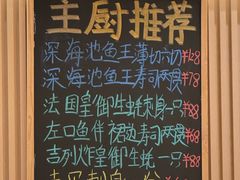 主厨推荐
深海池鱼王薄切六切¥128
深海池鱼王寿司两贯¥78
法国皇御生蚝刺身一只¥88
左口鱼伴裙边寿司两贯¥68
吉列炸皇御生蚝一只¥88